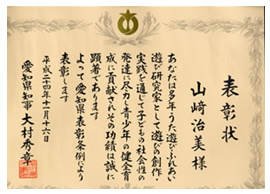 表彰状
山﨑治美様
あなたは多年うた遊びふれあい
遊び研究家として遊びの創作・
実践を通じて子どもの社会性の
発達に尽力し青少年の健全育
成に貢献されその功績は誠に
顕著であります
よって愛知県表彰条例により
表彰します
平成二十四年十一月十六日
愛知県知事 大村秀章